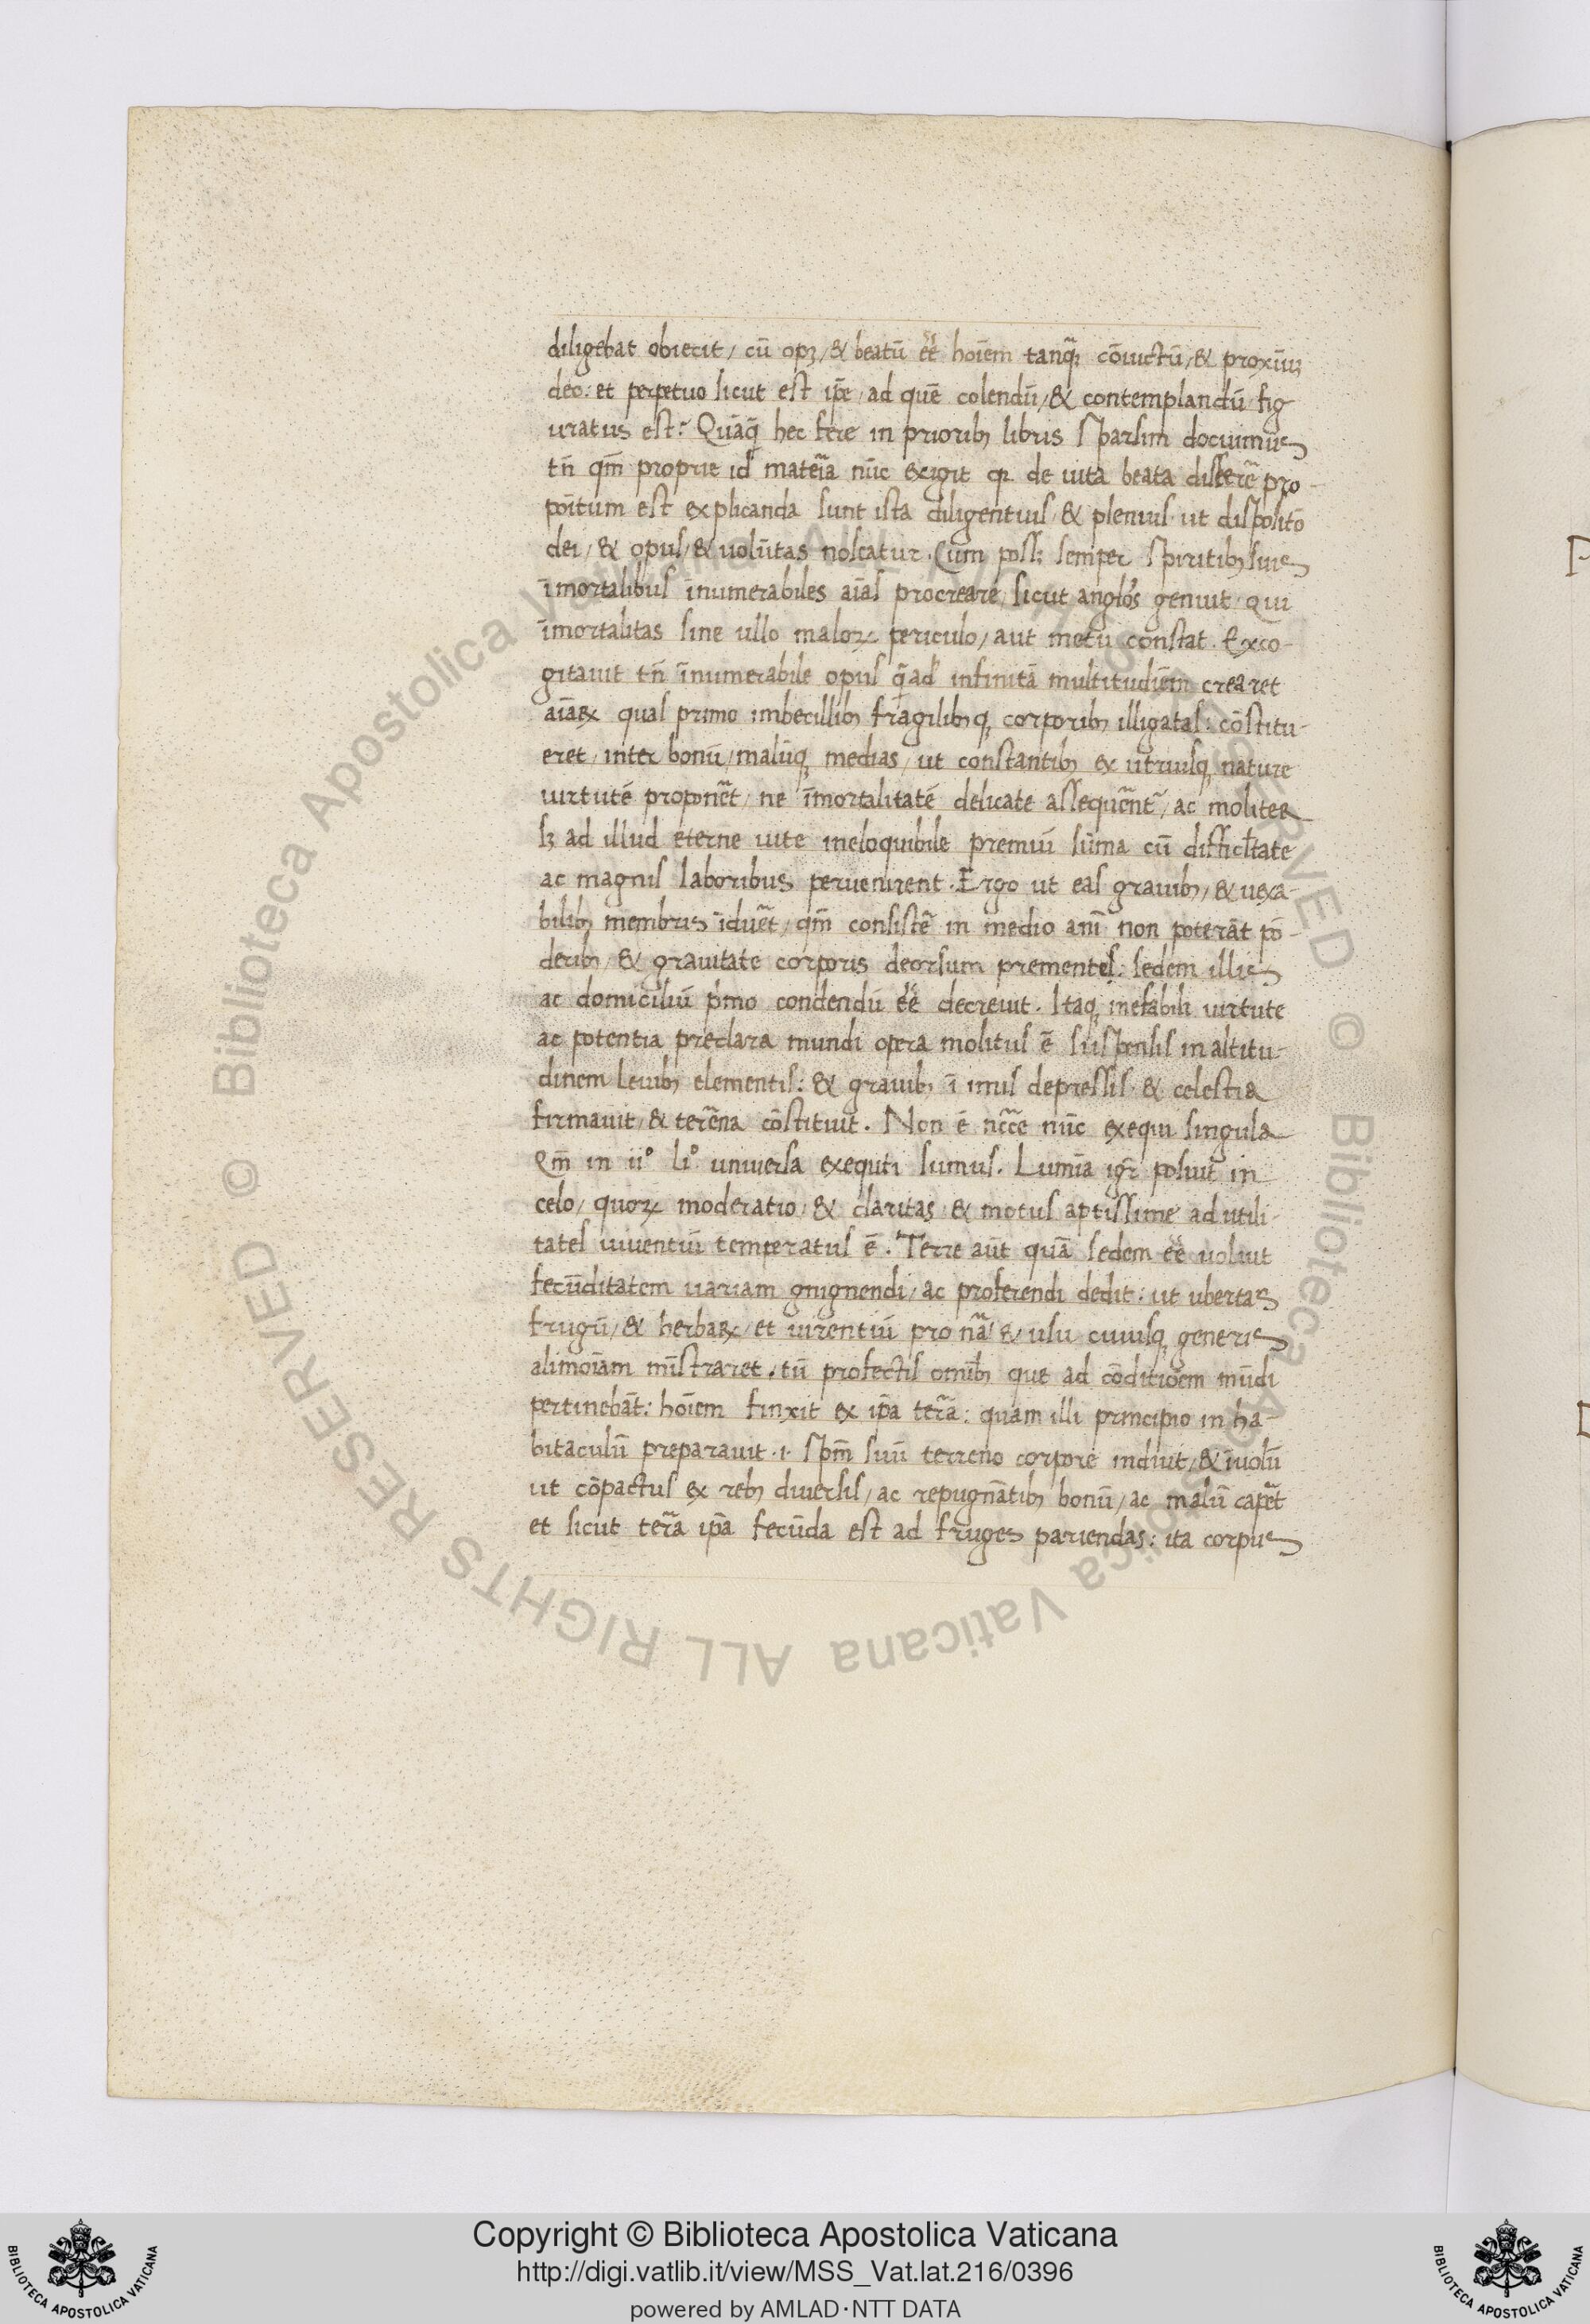 diligebat obiecit / cū opʒ / & beatū eē hoīem tanq̄ʒ cōiuctū / & proxīuʒ
deo : et perpetuo sicut est ip̄e / ad quē colendū / & contemplandū fig
uratus est ? Quāq̄ hec fere in prioribꝫ libris sparsim docuimus
tn̄ qm̄ proprie id materīa nūc exigit q̄ de uita beata disserē pro-
poītum est explicanda sunt ista diligentius & plenius ut dispolitō
dei / & opus / & uolūtas noscatur . Cum possꝫ semper spiritibꝫ suis
īmortalibus īnumerabiles aīas procreare sicut anglōs genuit qui
īmortalitas sine ullo maloꝝ periculo / aut metu constat . Exco-
gitauit tn̄ īnumerabile opus q̄ad infinitā multitudīem crearet
aīaꝝ quas primo imbecillibꝫ fragilibꝫqꝫ corporibꝫ illigatas : cōstitu-
eret / inter bonū / malūqꝫ medias / ut constantibꝫ ex utriusqꝫ nature
uirtutē proponēt / ne īmortalitatē delicate assequēnt̄ / ac moliter
sꝫ ad illud eterne uite ineloquibile premiū sūma cū difficl̄tate
ac magnis laboribus peruenirent . Ergo ut eas grauibꝫ / & uexa-
bilibꝫ membris īduēt / qm̄ consistē in medio anī non poterāt pō-
deribꝫ / & grauitate corporis deorsum prementes : sedem illis
ac domicilū p̄mo condendū eē decreuit . Itaqꝫ inefabili uirtute
ac potentia preclara mundi opera molitus ē suspensis in altitu-
dinem leuibꝫ elementis : & grauibꝫ ī imis depressis & celestia
firmauit / & terēna cōstituit . Non ē nc̄ce nūc exequi singula
Qm̄ in iiº liº uniuersa exequti sumus . Lumīa igr̄ posuit in
celo / quoꝝ moderatio / & claritas & motus aptissime ad utili-
tates uiuentiū temperatus ē . Terre aūt quā sedem eē uoluit
fecūditatem uariam gnignendi / ac proferendi dedit : ut ubertas
frugū / & herbaꝝ / et uirentiū pro nā & usu cuiusqꝫ generis
alimoīam mīstraret . tū profectis omībꝫ que ad cōditiōem mūdi
pertinebāt : hoīem finxit ex ip̄a terā : quam illi principio in ha-
bitaculū preparauit . i . spm̄ suū terreno corpore induit / & īuolū
ut cōpactus ex rebꝫ diuersis / ac repugnātibꝫ bonū / ac malū capēt
et sicut terā ip̄a fecūda est ad fruges pariendas : ita corpus
© Biblioteca Apostolica Vaticana ALL RIGHTS RESERVED © Biblioteca Apostolica Vaticana ALL RIGHTS RESERVED
Copyright © Biblioteca Apostolica Vaticana
http://digi.vatlib.it/view/MSS_Vat.lat.216/0396
powered by AMLAD·NTT DATA
BIBLIOTECA APOSTOLICA VATICANA
BIBLIOTECA APOSTOLICA VATICANA